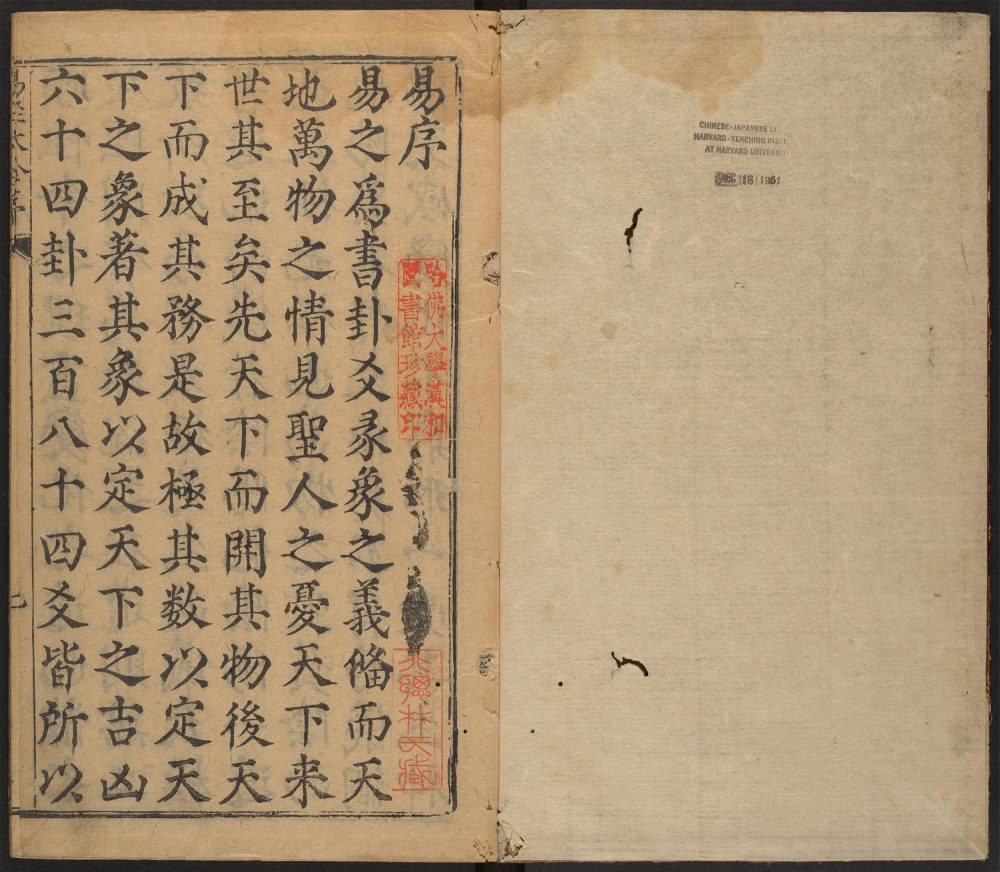 CHINESE-JAPANESE LI
HARVARD-YENCHING INSTI
AT HARVARD UNIVERSIT
DEC 18 1951
易序
哈佛大學漢和
圖書館珍藏印
易之爲書卦爻彖象之義俻而天
地萬物之情見聖人之憂天下来
世其至矣先天下而開其物後天
下而成其務是故極其数以定天
下之象著其象以定天下之吉凶
六十四卦三百八十四爻皆所以